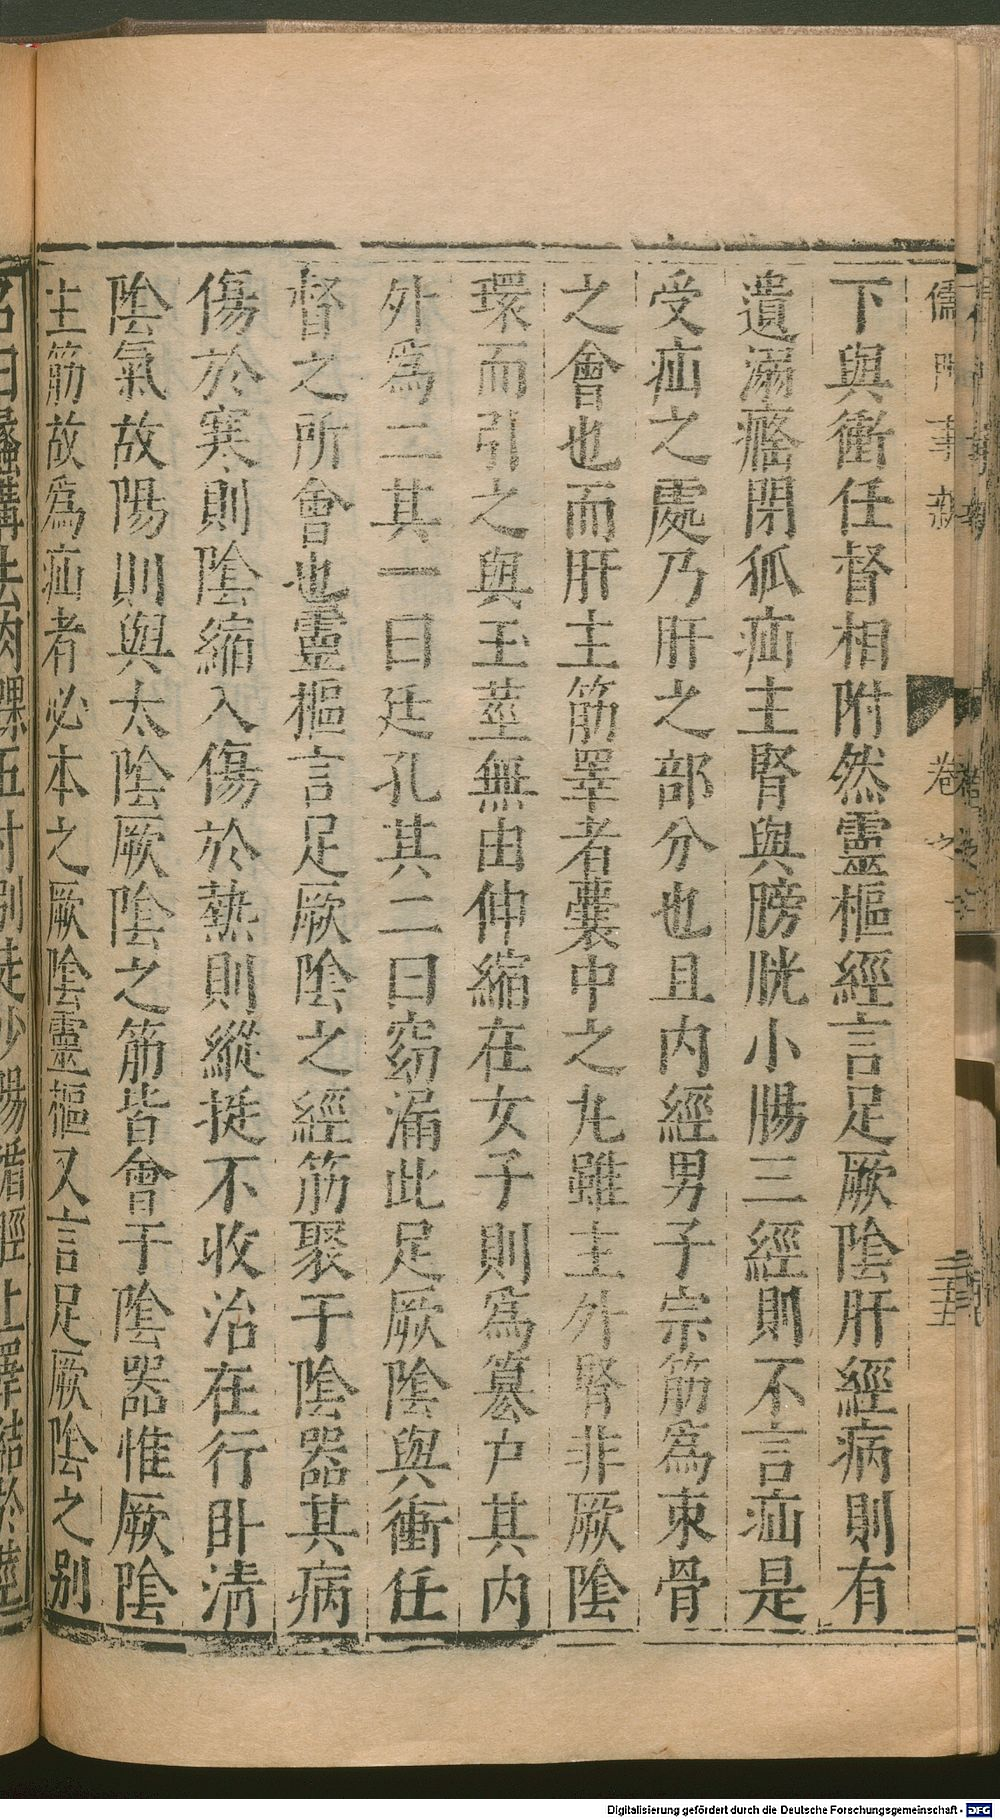 儒門事親 卷之 三五
下與衝任督相附然靈樞經言足厥陰肝經病則有
遺溺癃閉狐疝主腎與膀胱小腸三經則不言疝是
受疝之處乃肝之部分也且内經男子宗筋為束骨
之會也而肝主筋睪者囊中之丸雖主外腎非厥陰
環而引之與玉莖無由伸縮在女子則為篡户其内
外為二其一曰廷孔其二曰窈漏此足厥陰與衝任
督之所會也靈樞言足厥陰之經筋聚于陰器其病
傷於寒則陰縮入傷於熱則縱挺不收治在行卧清
陰氣故陽則與太陰厥陰之筋皆會于陰器惟厥陰
主筋故為疝者必本之厥陰靈樞又言足厥陰之别
名曰蠡溝去内踝五寸别走少陽循脛上睪結於莖
Digitalisierung gefördert durch die Deutsche Forschungsgemeinschaft - DFG